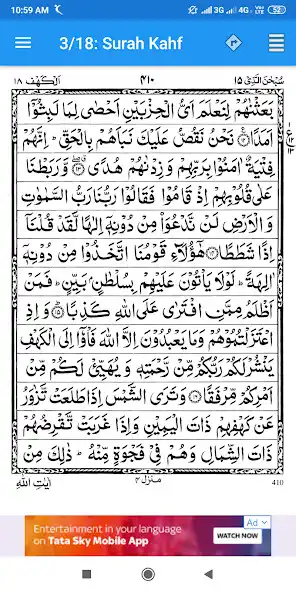 10:59 AM
3G
4G
VoI LTE
52
3/18: Surah Kahf
اَلْكَهْف ١٨
٤١٠
سُبْحٰنَ الَّذِيْۤ ١٥
بَعَثْنٰهُمْ لِنَعْلَمَ اَيُّ الْحِزْبَيْنِ اَحْصٰى لِمَا لَبِثُوْۤا
اَمَدًا ۝١٢ نَحْنُ نَقُصُّ عَلَيْكَ نَبَاَهُمْ بِالْحَقِّ ؕ اِنَّهُمْ
فِتْيَةٌ اٰمَنُوْا بِرَبِّهِمْ وَ زِدْنٰهُمْ هُدًى ۝١٣ وَّ رَبَطْنَا
عَلٰى قُلُوْبِهِمْ اِذْ قَامُوْا فَقَالُوْا رَبُّنَا رَبُّ السَّمٰوٰتِ
وَ الْاَرْضِ لَنْ نَّدْعُوَا۟ مِنْ دُوْنِهٖۤ اِلٰهًا لَّقَدْ قُلْنَاۤ
اِذًا شَطَطًا ۝١٤ هٰۤؤُلَآءِ قَوْمُنَا اتَّخَذُوْا مِنْ دُوْنِهٖۤ
اٰلِهَةً ؕ لَوْ لَا يَاْتُوْنَ عَلَيْهِمْ بِسُلْطٰنٍۭ بَيِّنٍ ؕ فَمَنْ
اَظْلَمُ مِمَّنِ افْتَرٰى عَلَى اللّٰهِ كَذِبًا ۝١٥ وَ اِذِ
اعْتَزَلْتُمُوْهُمْ وَ مَا يَعْبُدُوْنَ اِلَّا اللّٰهَ فَاْوٗۤا اِلَى الْكَهْفِ
يَنْشُرْ لَكُمْ رَبُّكُمْ مِّنْ رَّحْمَتِهٖ وَ يُهَيِّئْ لَكُمْ مِّنْ
اَمْرِكُمْ مِّرْفَقًا ۝١٦ وَ تَرَى الشَّمْسَ اِذَا طَلَعَتْ تَّزٰوَرُ
عَنْ كَهْفِهِمْ ذَاتَ الْيَمِيْنِ وَ اِذَا غَرَبَتْ تَّقْرِضُهُمْ
ذَاتَ الشِّمَالِ وَ هُمْ فِيْ فَجْوَةٍ مِّنْهُ ؕ ذٰلِكَ مِنْ
اٰيٰتِ اللّٰهِ
منزل ٤
410
Entertainment in your language
on Tata Sky Mobile App
Ad
WATCH NOW